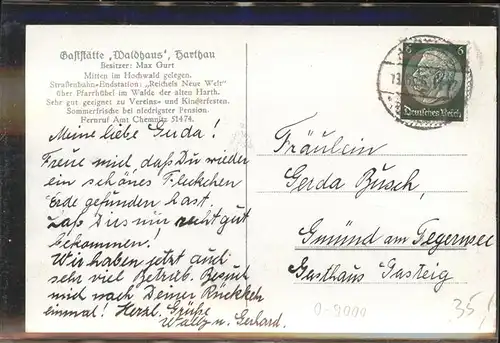 Gaststätte „Waldhaus", Harthau
Besitzer: Max Gurt
Mitten im Hochwald gelegen.
Straßenbahn-Endstation: „Reichels Neue Welt"
über Pfarrhübel im Walde der alten Harth.
Sehr gut geeignet zu Vereins- und Kinderfesten.
Sommerfrische bei niedrigster Pension.
Fernruf Amt Chemnitz 51474.
Meine liebe Guda!
Freue mich, daß Du wieder
ein schönes Fleckchen
Erde gefunden hast.
Laß Dirs nur recht gut
bekommen!
Wir haben jetzt auch
sehr viel Betrieb. Besuch
mich nach Deiner Rückkehr
einmal! Herzl. Grüße
Wally u. Gerhard.
6 6
Deutsches Reich
Fräulein
Gerda Busch,
Gmünd am Tegernsee
Gasthaus Gasteig
0-9000
35,